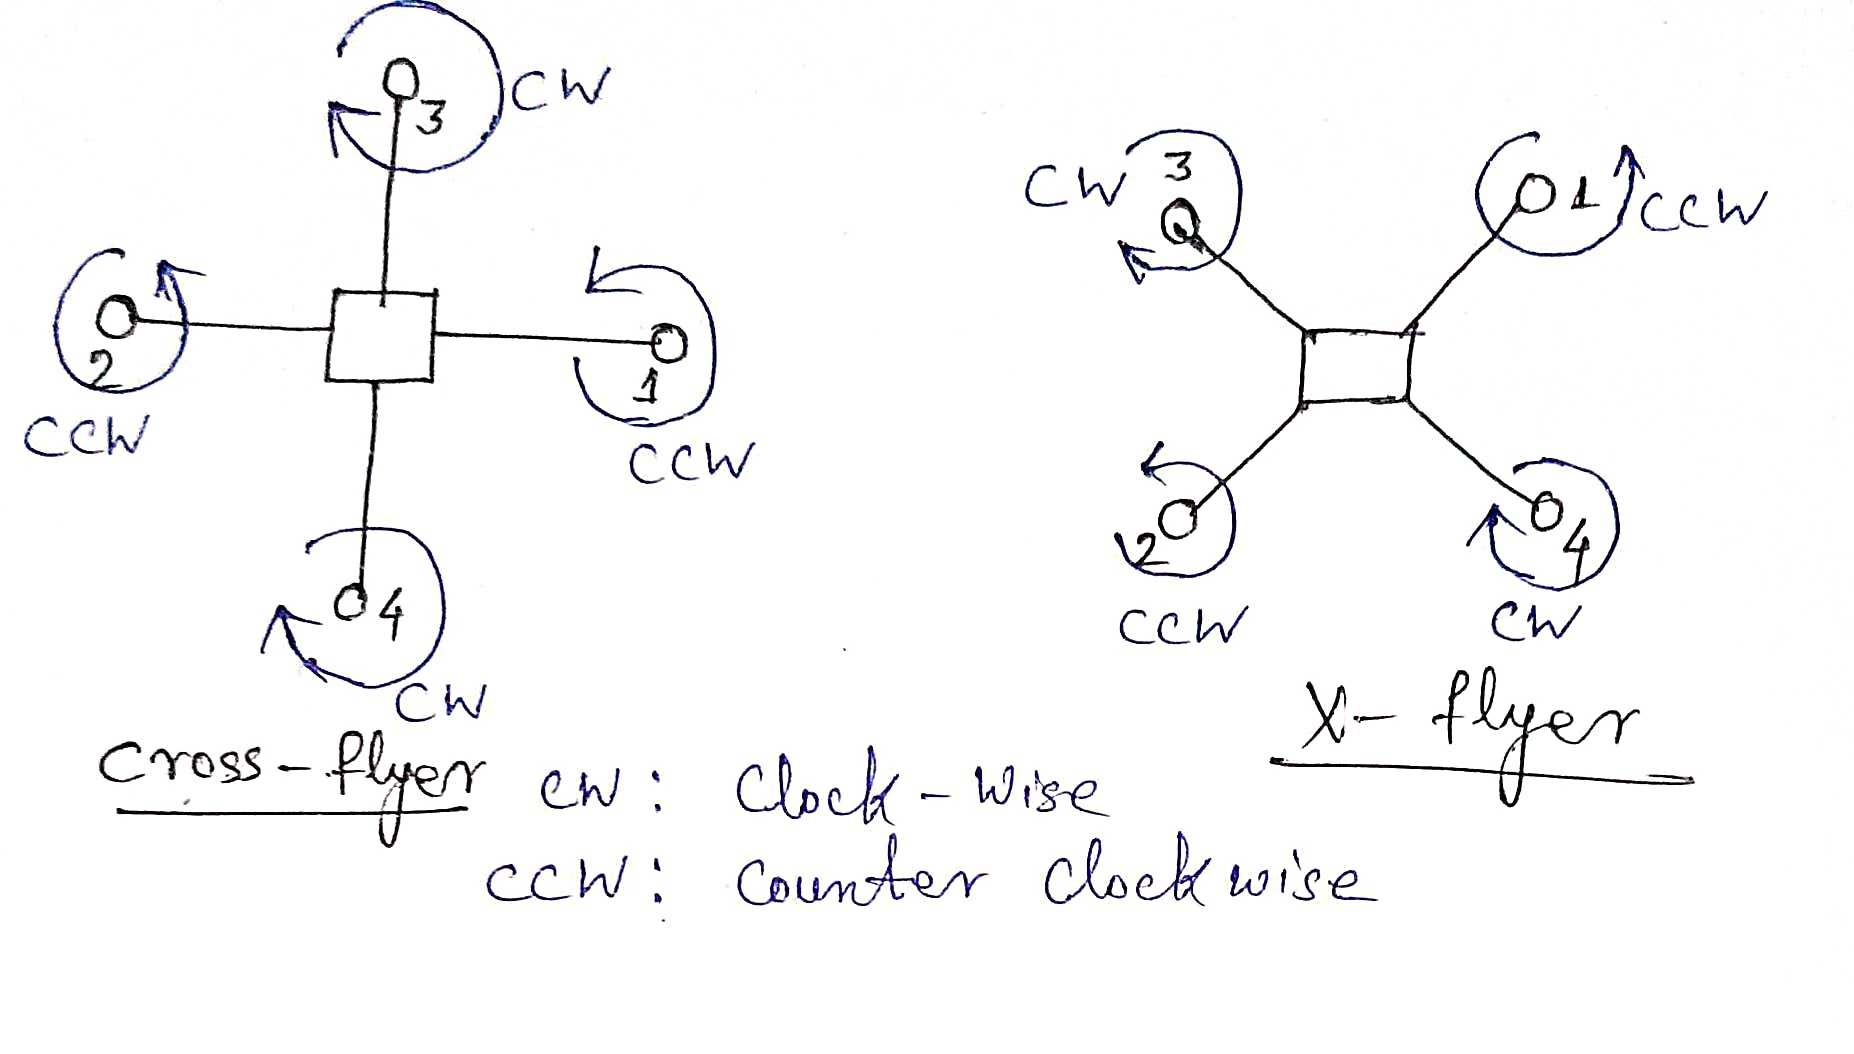 3 CW
2
CCW
1
CCW
4
CW
Cross-flyer
CW 3
1 CCW
2
CCW
4
CW
X-flyer
CW : Clock-Wise
CCW : Counter Clockwise